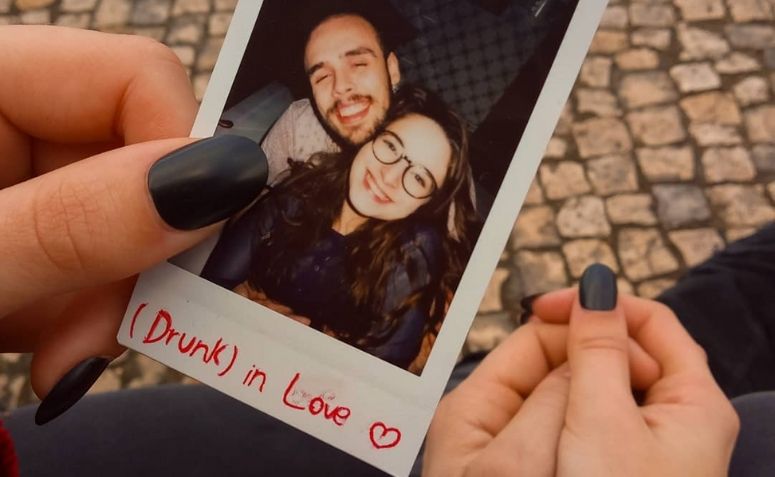 (Drunk) in Love ♡